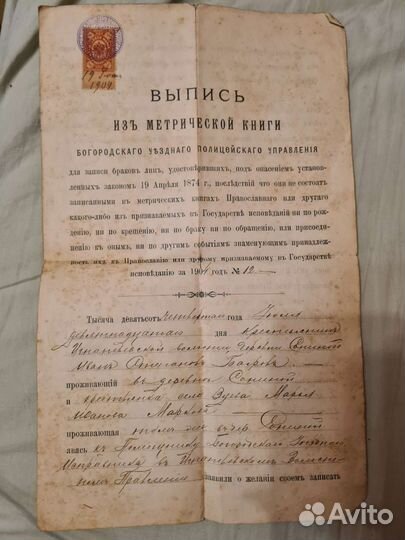 19 Июля
1904
ВЫПИСЬ
ИЗЪ МЕТРИЧЕСКОЙ КНИГИ
БОГОРОДСКАГО УѢЗДНАГО ПОЛИЦЕЙСКАГО УПРАВЛЕНІЯ
для записи браковъ лицъ, удостовѣрившихъ, подъ опасеніемъ установ-
ленныхъ закономъ 19 Апрѣля 1874 г., послѣдствій что они не состоятъ
записанными въ метрическихъ книгахъ Православнаго или другаго
какого-либо изъ признаваемыхъ въ Государствѣ исповѣданій ни по рож-
денію, ни по крещенію, ни по браку ни по обращенію, или присоеди-
ненію къ онымъ, ни по другимъ событіямъ знаменующимъ принадлеж-
ность ихъ къ Православію или другому признаваемому въ Государствѣ
исповѣданію за 1904 годъ № 12
Тысяча девятьсотъ четвертаго года Іюля
девятнадцатаго дня крестьянинъ
волости деревни
проживающій въ деревнѣ
и крестьянка село Зуева Марья
Иванова Маркова
проживающая
явясь къ Помощнику Богородскаго Уѣзднаго
Исправника въ Волост-
номъ Правленіи заявили о желаніи своемъ записать
Avito